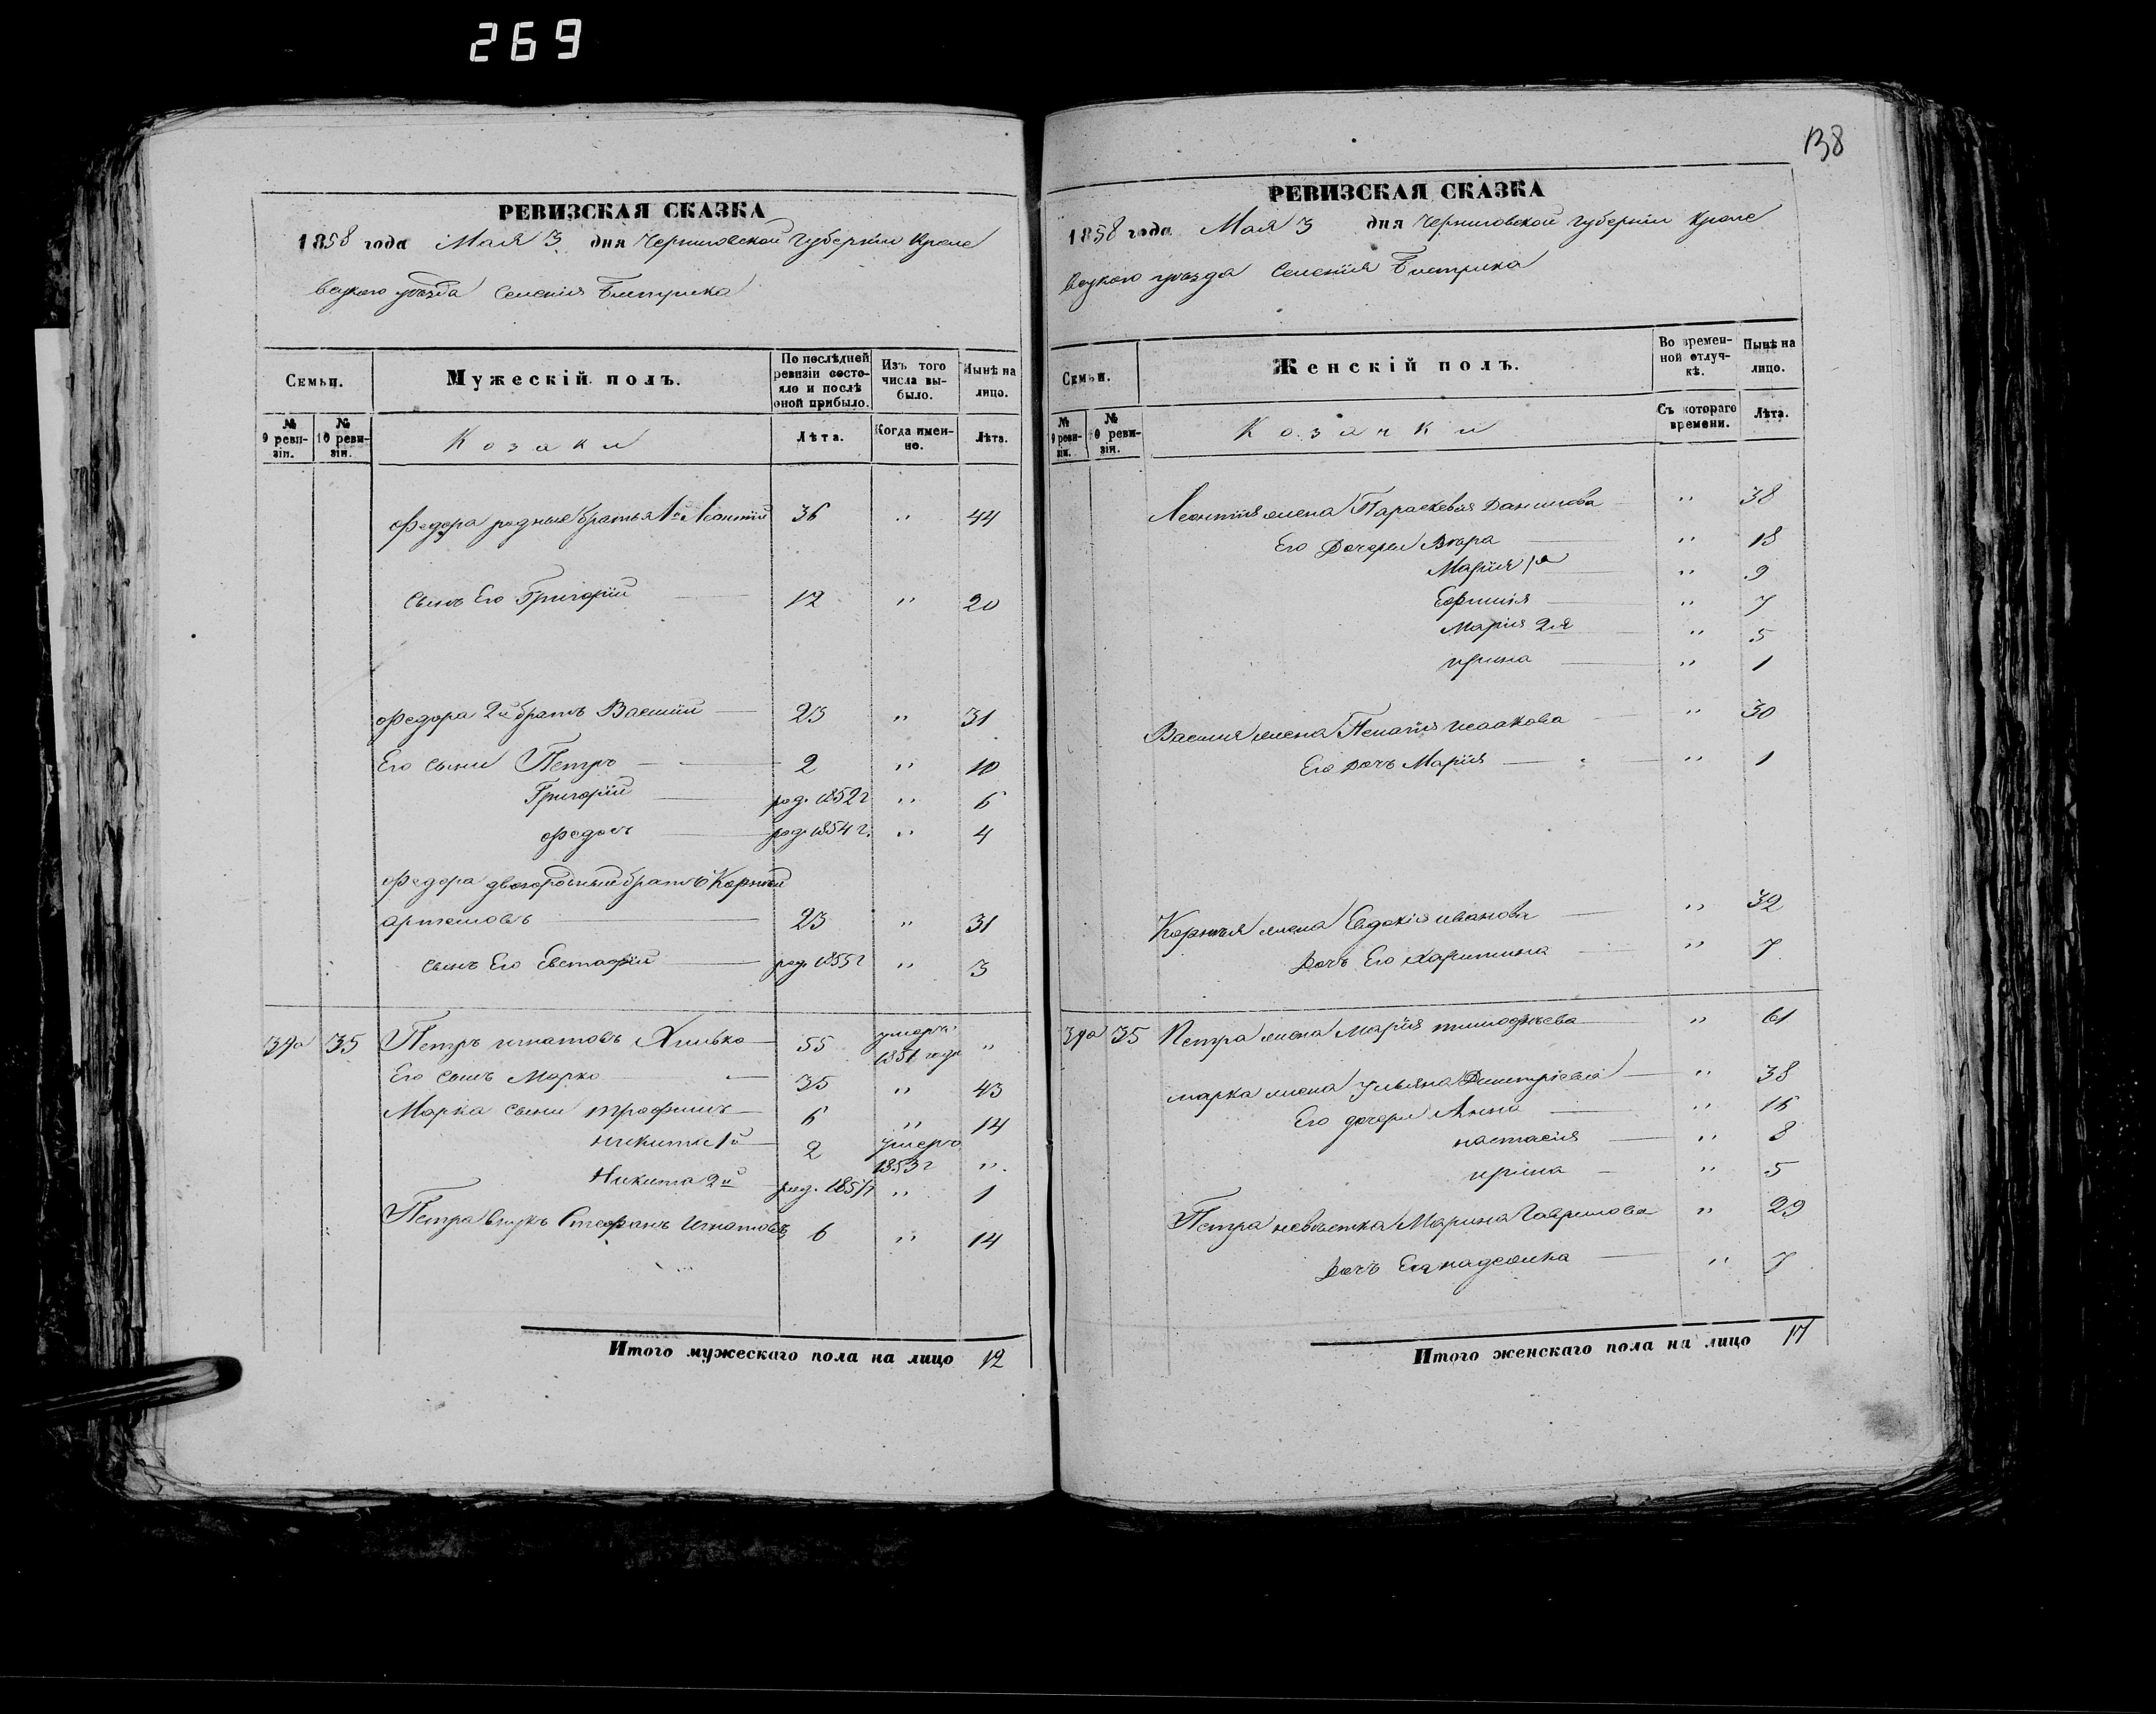 269
РЕВИЗСКАЯ СКАЗКА
1858 года Мая 3 дня Черниговской Губерніи Кроле
вецкаго уѣзда Селенія Быстрика
Семьи.
Мужескій полъ.
По послѣдней ревизіи состояло и послѣ оной прибыло.
Изъ того числа выбыло.
Нынѣ на лицо.
№ 9 ревизіи.
№ 10 ревизіи.
Козаки
Лѣта.
Когда именно.
Лѣта.
Федора родные братья 1й Леонтій 36 " 44
Сынъ Его Григорій 12 " 20
Федора 2й братъ Василій 23 " 31
Его сыни Петръ 2 " 10
Григорій род. 1852 г " 6
Федоръ род. 1854 г. " 4
Федора двоюродный братъ Корнѣй
Артемовъ 23 " 31
сынъ Его Евстафій род. 1855 г " 3
35 Петръ игнатовъ Хилько 55 умеръ 1851 года "
Его сынъ Марко 35 " 43
Марка сыни трофимъ 6 " 14
никита 1й 2 Умеръ 1853 г "
Никита 2й род. 1857 г " 1
Петра внукъ Стефанъ Игнатовъ 6 " 14
Итого мужескаго пола на лицо 12
138
РЕВИЗСКАЯ СКАЗКА
1858 года Мая 3 дня Черниговской Губерніи Кроле
вецкаго уѣзда Селенія Быстрика
Семьи.
Женскій полъ.
Во временной отлучкѣ.
Нынѣ на лицо.
№ 9 ревизіи.
№ 10 ревизіи.
Козачки
Съ котораго времени.
Лѣта.
Леонтія жена Параскевія Данилова " 38
Его Дочери Вѣра " 18
Марія 1я " 9
Евфимія " 7
Марія 2я " 5
ирина " 1
Василія жена Исаакова " 30
Его дочь Марія " 1
Корнѣя жена Евдокія иванова " 32
Дочь Его Харитина " 7
35 Петра жена Марія тимофѣева " 61
марка жена Ульяна Дмитріева " 38
Его дочери Анна " 16
настасія " 8
ирина " 5
Петра невѣстка Марина Гаврилова " 29
Дочь Ея надежка " 7
Итого женскаго пола на лицо 17